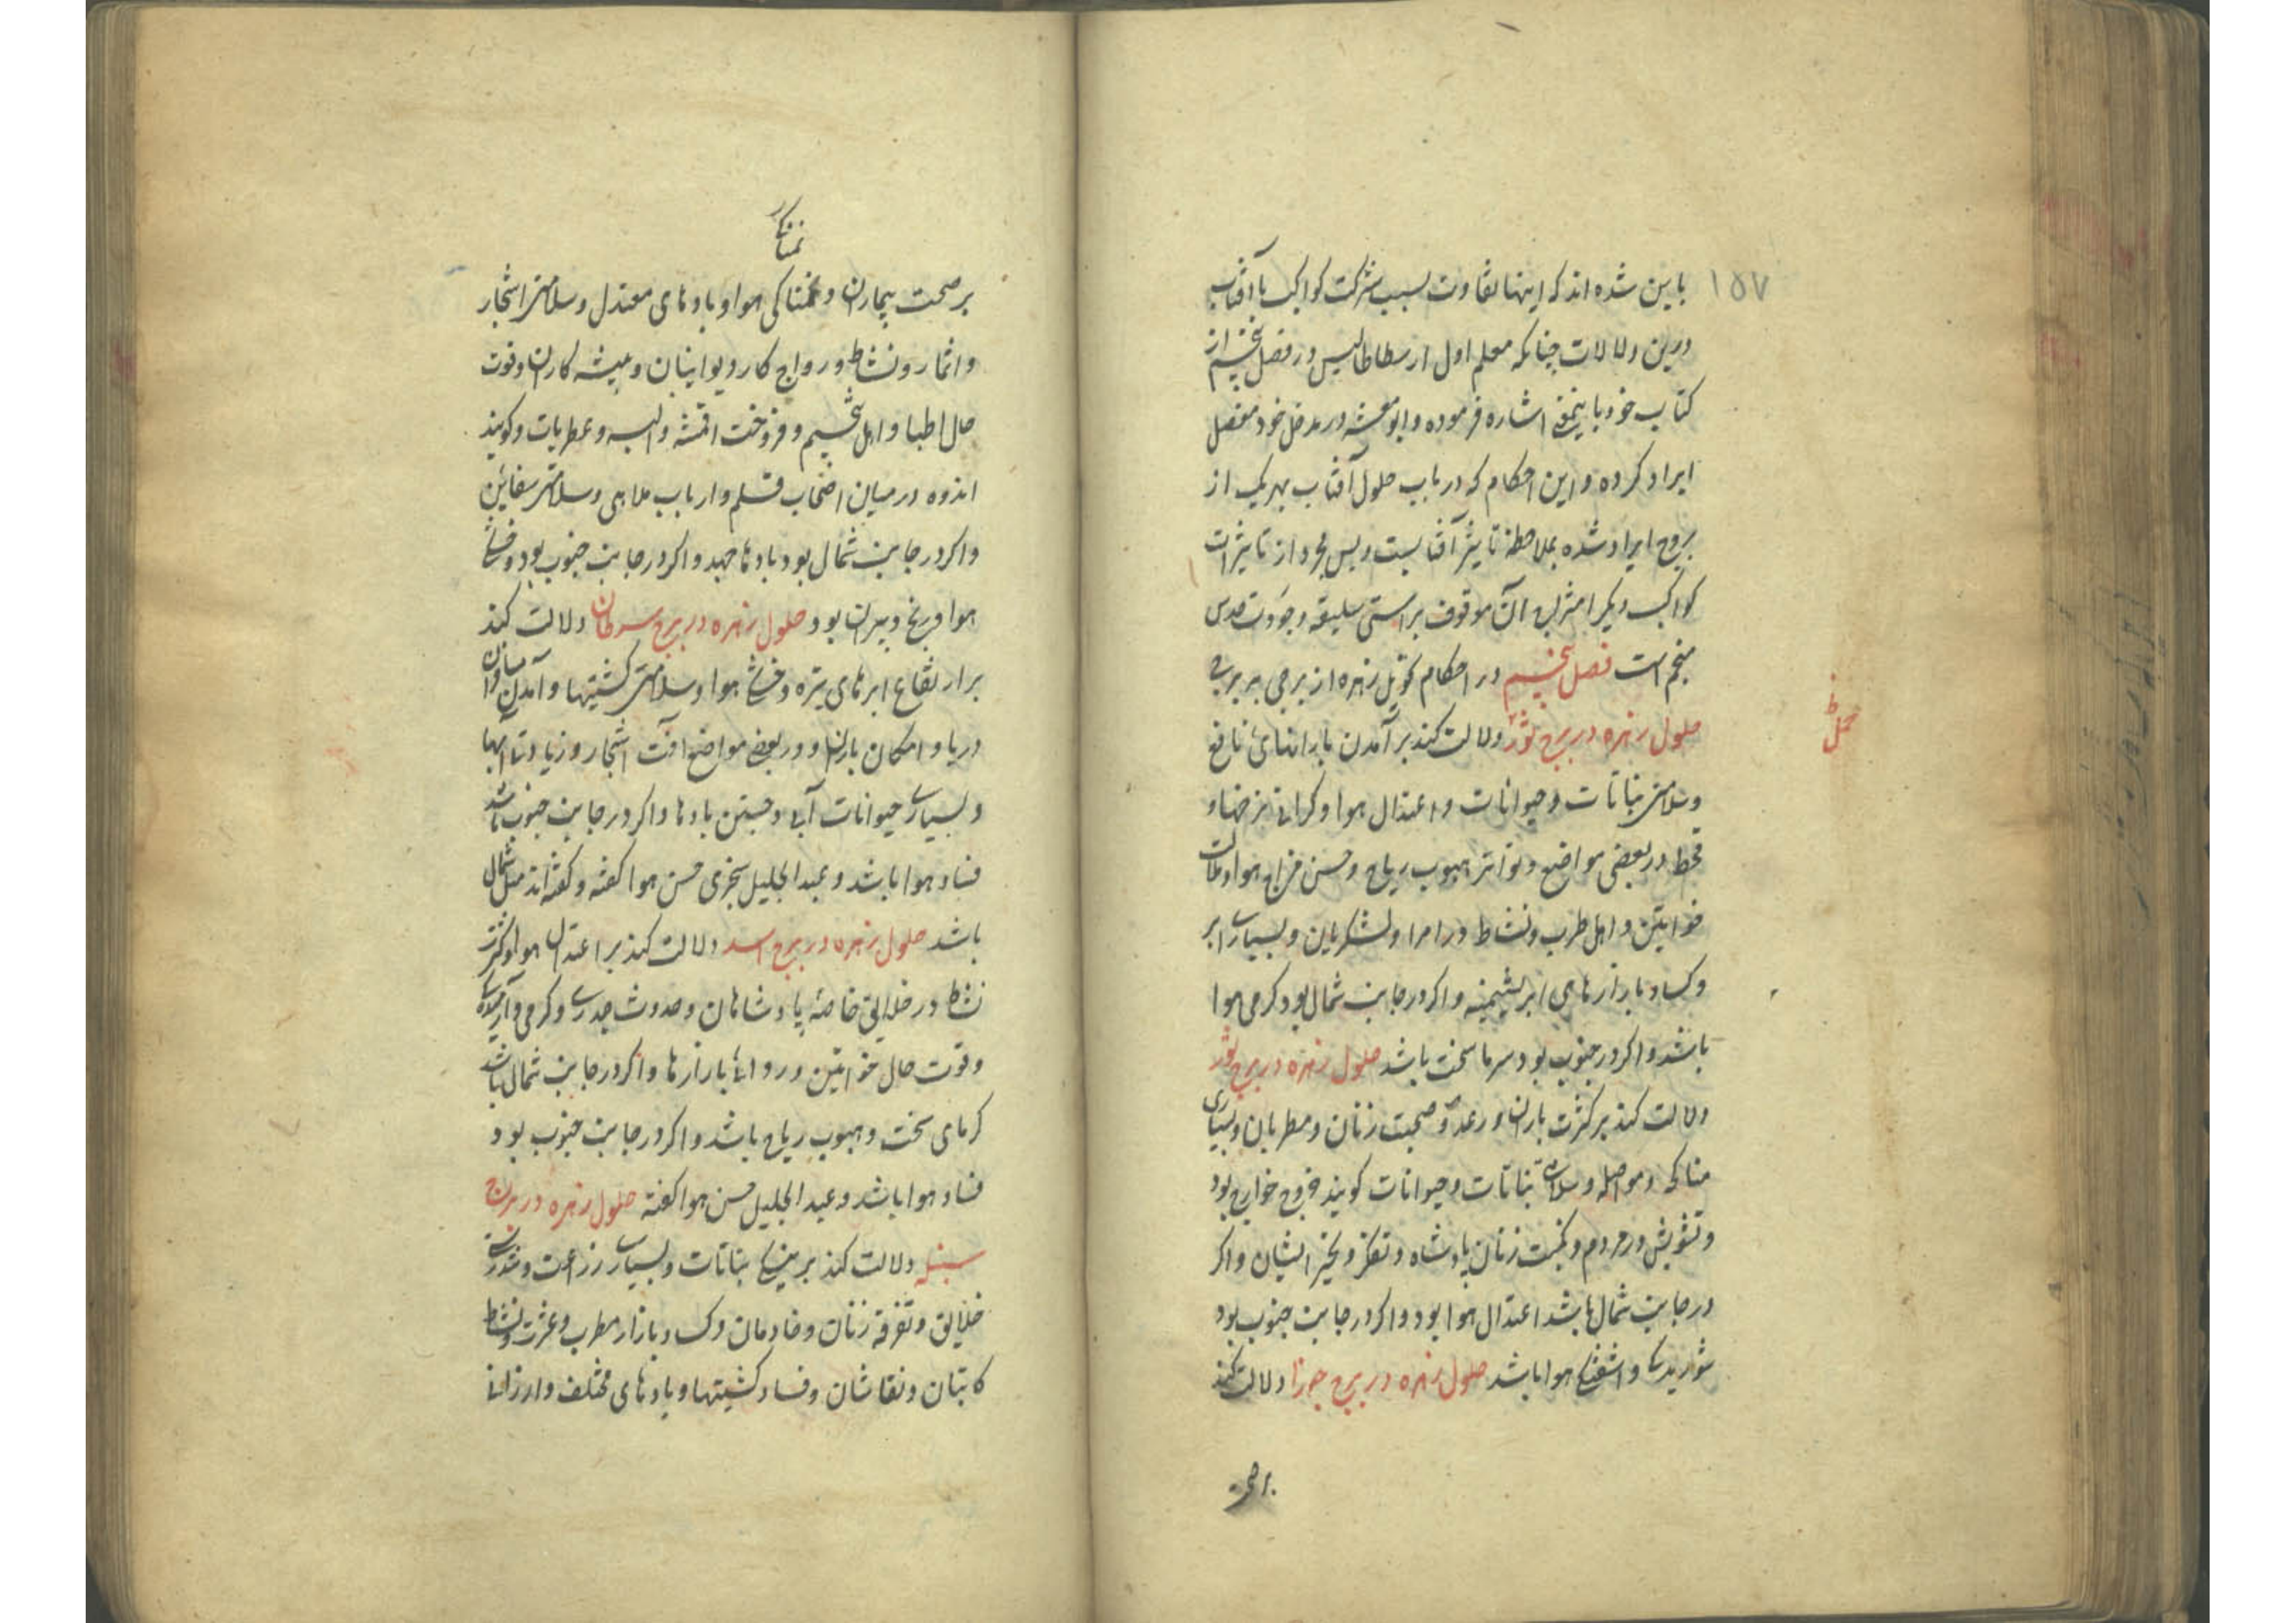 ۱۵۷
باین شده اند که اینها تفاوت بسبب شرکت کواکب باآفتاب
درین دلالات چنانکه معلم اول ارسطاطالیس در فصل پنجم از
کتاب خود باینمعنی اشاره فرموده وابومعشر در مدخل خود مفصل
ایراد کرده و این احکام که در باب حلول آفتاب بهر یک از
بروج ایراد شده بملاحظهٔ تاثیر آفتابست و بس مجرد از تاثیرات
کواکب دیگر امتزاج آن موقوف براستی سلیقه وجودت حدس
منجم است فصل پنجم در احکام تحویل زهره از برجی ببرجی
حمل
حلول زهره در برج ثور دلالت کند بر آمدن بارانهای نافع
وسلامتی نباتات و حیوانات و اعتدال هوا وکرانی نرخها و
قحط در بعضی مواضع و تواتر هبوب ریاح و حسن مزاج هوا و ملالت
خواتین و اهل طرب و نشاط در امرا و لشکریان و بسیاری ابر
وکساد بازارهای ابریشمینه و اکر در جانب شمال بود کرمی هوا
باشد و اکر در جنوب بود سرما سخت باشد حلول زهره در برج ثور
دلالت کند بر کثرت باران و رعد و صحبت زنان و مطربان و بسیاری
مناکحه و مواصله و سلامتی نباتات و حیوانات کویند خروج خوارج بود
و تشویش در مردم و نکبت زنان پادشاه و تفکر و تحیر ایشان و اکر
در جانب شمال باشد اعتدال هوا بود و اکر در جانب جنوب بود
شوریدکی و اشفتکی هوا باشد حلول زهره در برج جوزا دلالت کند
بر صحت
نمناکی
بر صحت بیماران و نمناکی هوا و بادهای معتدل و سلامتی اشجار
و اثمار و نشاط و رواج کار دیوانیان و پیشه کاران و قوت
حال اطبا و اهل تنجیم و فروخت اقمشه والبسه و عطریات و کویند
اندوه در میان اصحاب قلم و ارباب ملاهی و سلامتی سفاین
و اکر در جانب شمال بود بادها جهد و اکر در جانب جنوب بود و خشکی
هوا و بود و حلول زهره در برج سرطان دلالت کند
بر ارتفاع ابرهای تیره و خشکی هوا و سلامتی کشتیها و آمدن مسافران
دریا و امکان باران و در بعضی مواضع آفت اشجار و زیادتی آبها
و بسیاری حیوانات آبی و جستن بادها و اکر در جانب جنوب باشد
فساد هوا باشد و عبد الجلیل سجزی حسن هوا کفته و کفته اند مثل شمال
باشد حلول زهره در برج اسد دلالت کند بر اعتدال هوا و کثرت
نشاط در خلایق خاصهٔ پادشاهان و حدوث جدری و کرمی و
وقوت حال خواتین و روائی بازارها و اکر در جانب شمال باشد
کرمای سخت و هبوب ریاح باشد و اکر در جانب جنوب بود
فساد هوا باشد و عبد الجلیل حسن هوا کفته حلول زهره در برج
سنبله دلالت کند بر نباتات و بسیاری زراعت و
خلایق و تفرقه زنان و خادمان و کساد بازار مطرب و عشرت و نشاط
کاتبان و نقاشان و فساد کشتیها و بادهای مختلف و ارزانی